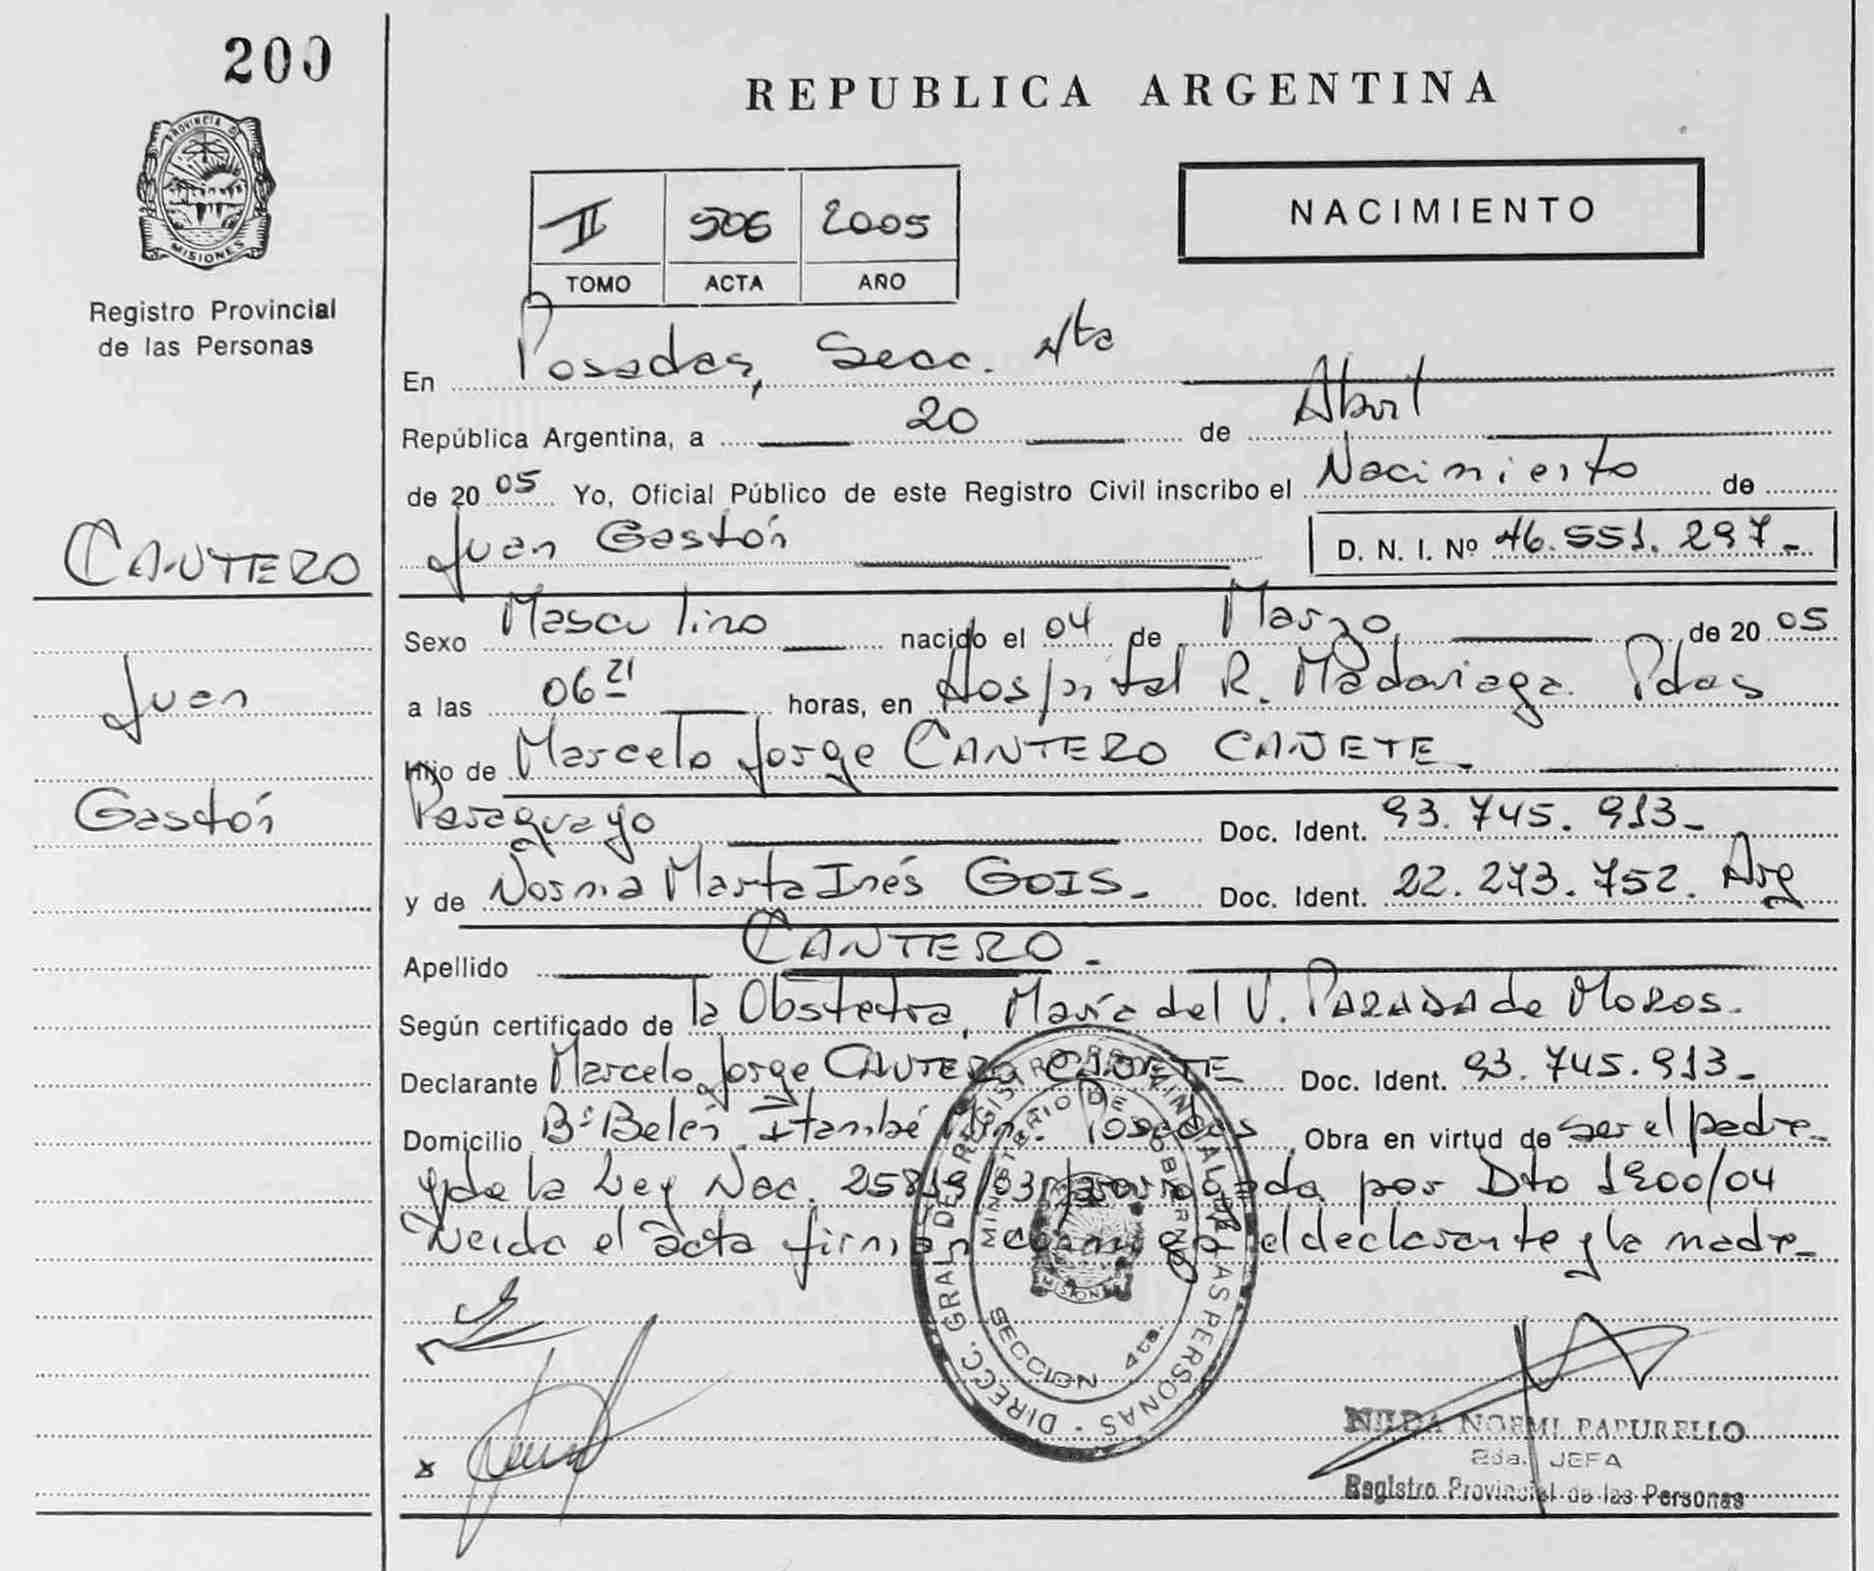 200
REPUBLICA ARGENTINA
PROVINCIA DE
MISIONES
Registro Provincial
de las Personas
II 506 2005
TOMO ACTA AÑO
NACIMIENTO
En Posadas, Secc. 4ta
República Argentina, a 20 de Abril
de 20 05 Yo, Oficial Público de este Registro Civil inscribo el Nacimiento de
Juan Gastón D. N. I. Nº 46.551.297.-
CANTERO
Juan
Gastón
Sexo Masculino nacido el 04 de Marzo de 20 05
a las 06 21 horas, en Hospital R. Madariaga. Pdas
Hijo de Marcelo Jorge CANTERO CAÑETE.
Paraguayo Doc. Ident. 93.745.913.-
y de Norma Marta Inés GOIS.- Doc. Ident. 22.273.752. Arg
Apellido CANTERO.-
Según certificado de la Obstetra, María del V. PARADA de MOROS.
Declarante Marcelo Jorge CANTERO CAÑETE Doc. Ident. 93.745.913.-
Domicilio Bº Belén Itambé Min. Posadas Obra en virtud de ser el padre
y de la Ley Nac. 25819/03 prorrogada por Dto 1900/04
Leida el acta firman conmigo el declarante y la madre
DIRECC. GRAL DE REGISTRO PROVINCIAL DE LAS PERSONAS
MINISTERIO DE GOBIERNO
SECCION 4ta.
NILDA NOEMI PAPURELLO
2da. JEFA
Registro Provincial de las Personas